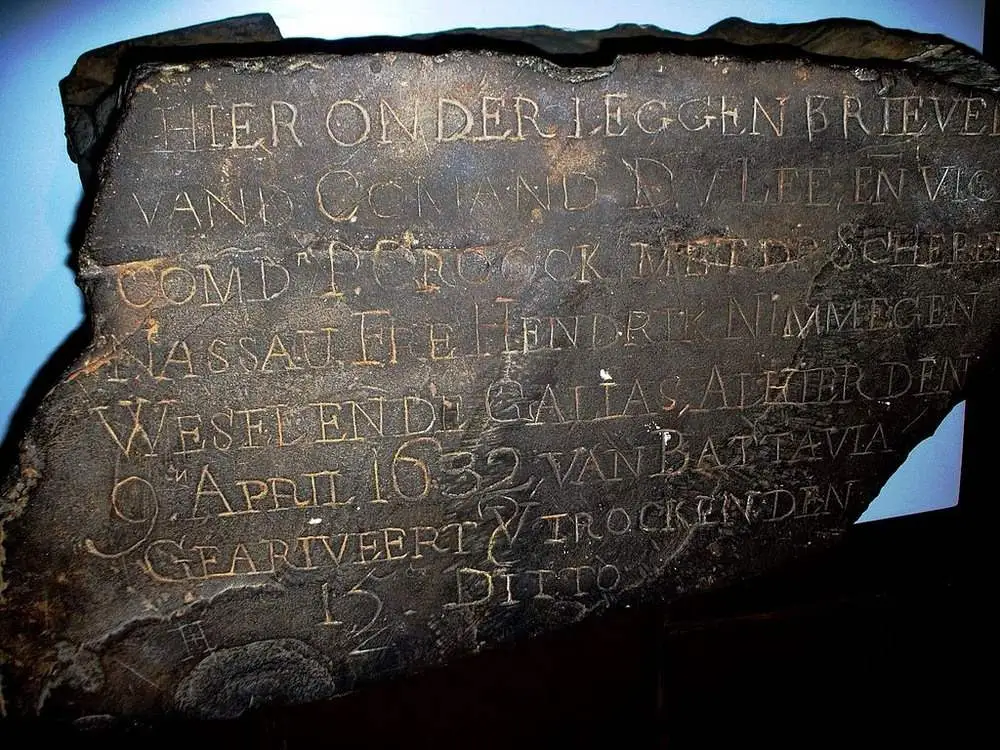 HIER ONDER LEGGEN BRIEVEN
VAND COMAND D.V LEE, EN VIC
COMDR P. CROOCK MET DE SCHEPEN
NASSAU FRE HENDRIK NIMMEGEN
WESEL ENDE GALIAS, ALHIER DEN
9EN APRIL 1632, VAN BATTAVIA
GEARIVEERT V TROCKEN DEN
15 DITTO